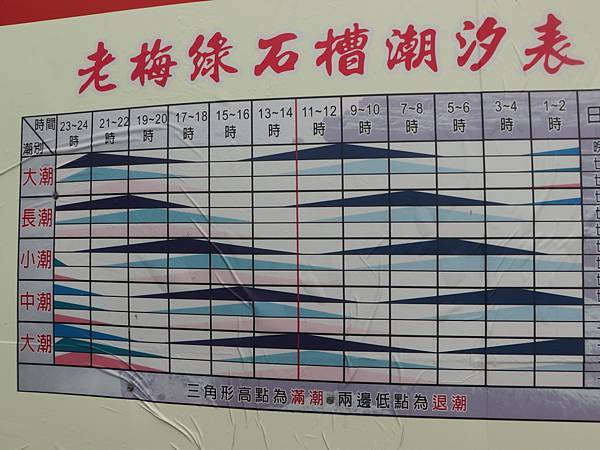 老梅綠石槽潮汐表
時間 23~24時 21~22時 19~20時 17~18時 15~16時 13~14時 11~12時 9~10時 7~8時 5~6時 3~4時 1~2時
潮別
大潮
長潮
小潮
中潮
大潮
三角形高點為滿潮 兩邊低點為退潮